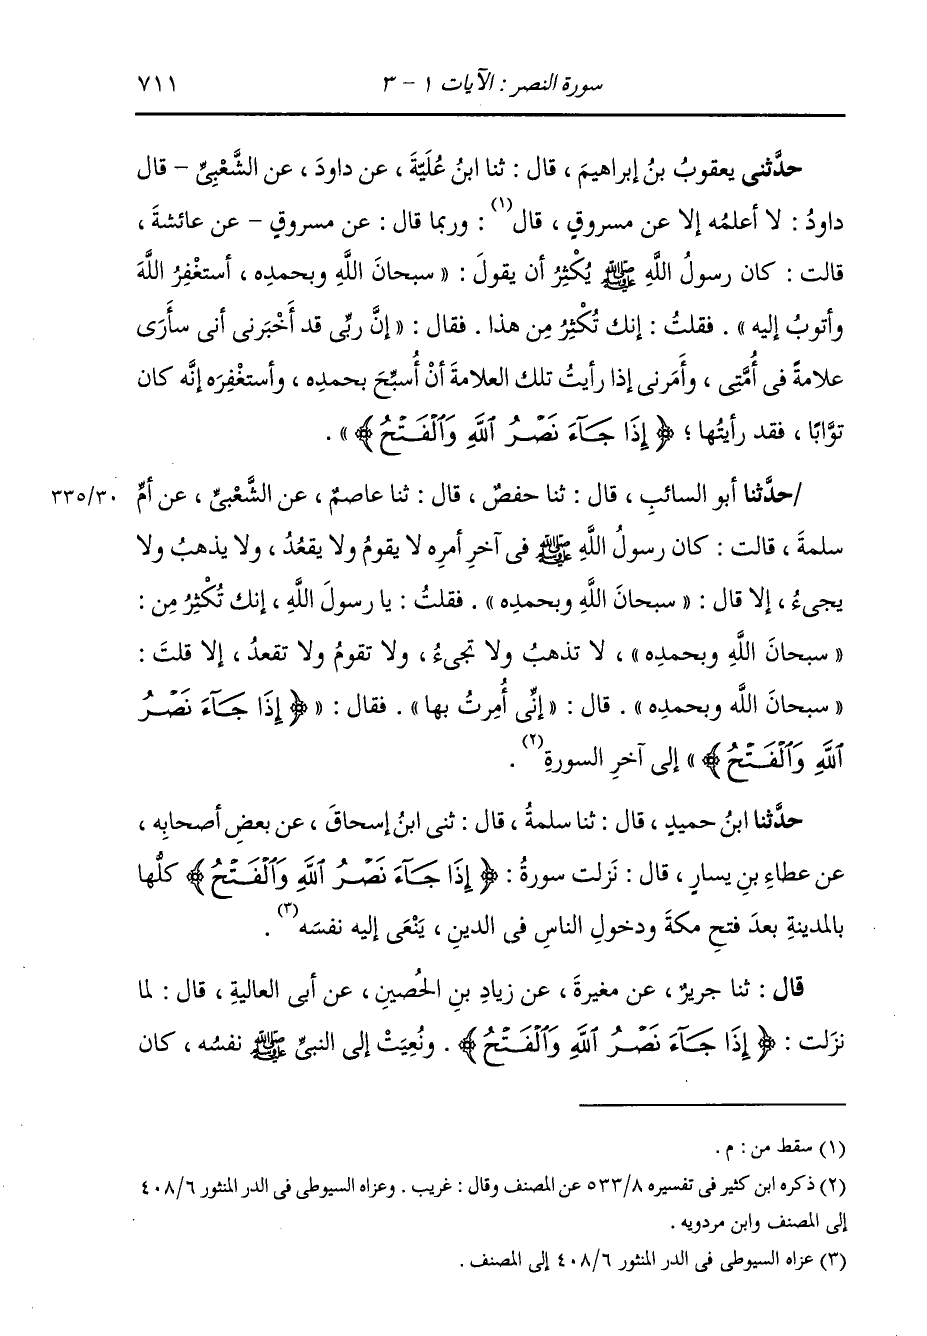 سورة النصر : الآيات ١ - ٣ ٧١١
حدَّثنى يعقوبُ بنُ إبراهيمَ ، قال : ثنا ابنُ عُلَيّةَ ، عن داودَ ، عن الشَّعْبِىِّ - قال
داودُ : لا أعلمُه إلا عن مسروقٍ ، قال(١) : وربما قال : عن مسروقٍ - عن عائشةَ ،
قالت : كان رسولُ اللَّهِ ﷺ يُكْثِرُ أن يقولَ : « سبحانَ اللَّهِ وبحمدِه ، أستغْفِرُ اللَّهَ
وأتوبُ إليه » . فقلتُ : إنك تُكْثِرُ مِن هذا . فقال : « إنَّ ربِّى قد أَخْبَرنى أنى سأَرَى
علامةً فى أُمَّتِى ، وأَمَرنى إذا رأيتُ تلك العلامةَ أنْ أُسبِّحَ بحمدِه ، وأستغْفِرَه إنَّه كان
توَّابًا ، فقد رأيتُها ؛ ﴿ إِذَا جَآءَ نَصْرُ ٱللَّهِ وَٱلْفَتْحُ ﴾ » .
/حدَّثنا أبو السائبِ ، قال : ثنا حفصٌ ، قال : ثنا عاصمٌ ، عن الشَّعْبىِّ ، عن أمِّ ٣٣٥/٣٠
سلمةَ ، قالت : كان رسولُ اللَّهِ ﷺ فى آخرِ أمرِه لا يقومُ ولا يقعُدُ ، ولا يذهبُ ولا
يجىءُ ، إلا قال : « سبحانَ اللَّهِ وبحمدِه » . فقلتُ : يا رسولَ اللَّهِ ، إنك تُكْثِرُ مِن :
« سبحانَ اللَّهِ وبحمدِه » ، لا تذهبُ ولا تجىءُ ، ولا تقومُ ولا تقعدُ ، إلا قلتَ :
« سبحانَ اللَّه وبحمدِه » . قال : « إنِّى أُمِرتُ بها » . فقال : « ﴿ إِذَا جَآءَ نَصْرُ
ٱللَّهِ وَٱلْفَتْحُ ﴾ » إلى آخرِ السورةِ(٢) .
حدَّثنا ابنُ حميدٍ ، قال : ثنا سلمةُ ، قال : ثنى ابنُ إسحاقَ ، عن بعضِ أصحابِه ،
عن عطاءِ بنِ يسارٍ ، قال : نَزلت سورةُ : ﴿ إِذَا جَآءَ نَصْرُ ٱللَّهِ وَٱلْفَتْحُ ﴾ كلُّها
بالمدينةِ بعدَ فتحِ مكةَ ودخولِ الناسِ فى الدينِ ، يَنْعَى إليه نفسَه(٣) .
قال : ثنا جريرٌ ، عن مغيرةَ ، عن زيادِ بنِ الحُصينِ ، عن أبى العاليةِ ، قال : لما
نزَلت : ﴿ إِذَا جَآءَ نَصْرُ ٱللَّهِ وَٱلْفَتْحُ ﴾ . ونُعِيَتْ إلى النبىِّ ﷺ نفسُه ، كان
(١) سقط من : م .
(٢) ذكره ابن كثير فى تفسيره ٥٣٣/٨ عن المصنف وقال : غريب . وعزاه السيوطى فى الدر المنثور ٤٠٨/٦
إلى المصنف وابن مردويه .
(٣) عزاه السيوطى فى الدر المنثور ٤٠٨/٦ إلى المصنف .